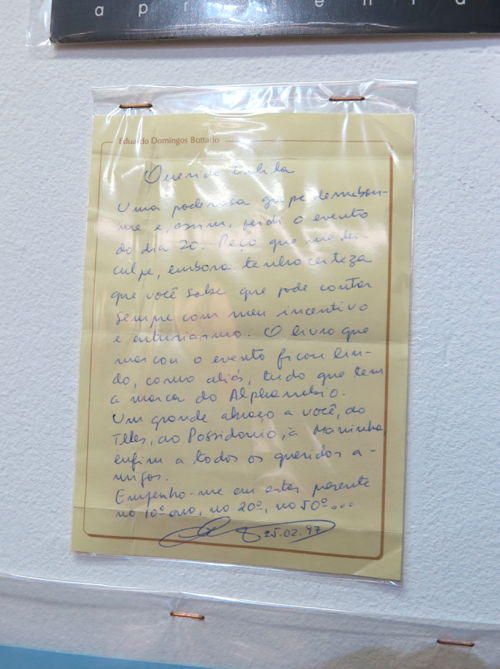 apresenta
Eduardo Domingos Bottallo
Querida Dalila
Uma poderosa gripe derrubou-
me e, assim, perdi o evento
do dia 20. Peço que me des-
culpe, embora tenho certeza
que você sabe que pode contar
sempre com meu incentivo
e entusiasmo. O livro que
marcou o evento ficou lin-
do, como aliás, tudo que tem
a marca do Alpharrabio.
Um grande abraço a você, ao
Teles, ao Possidonio, à Maninha,
enfim a todos os queridos a-
migos.
Empenho-me em estar presente
no 10º ano, no 20º, no 50º...
25.02.97